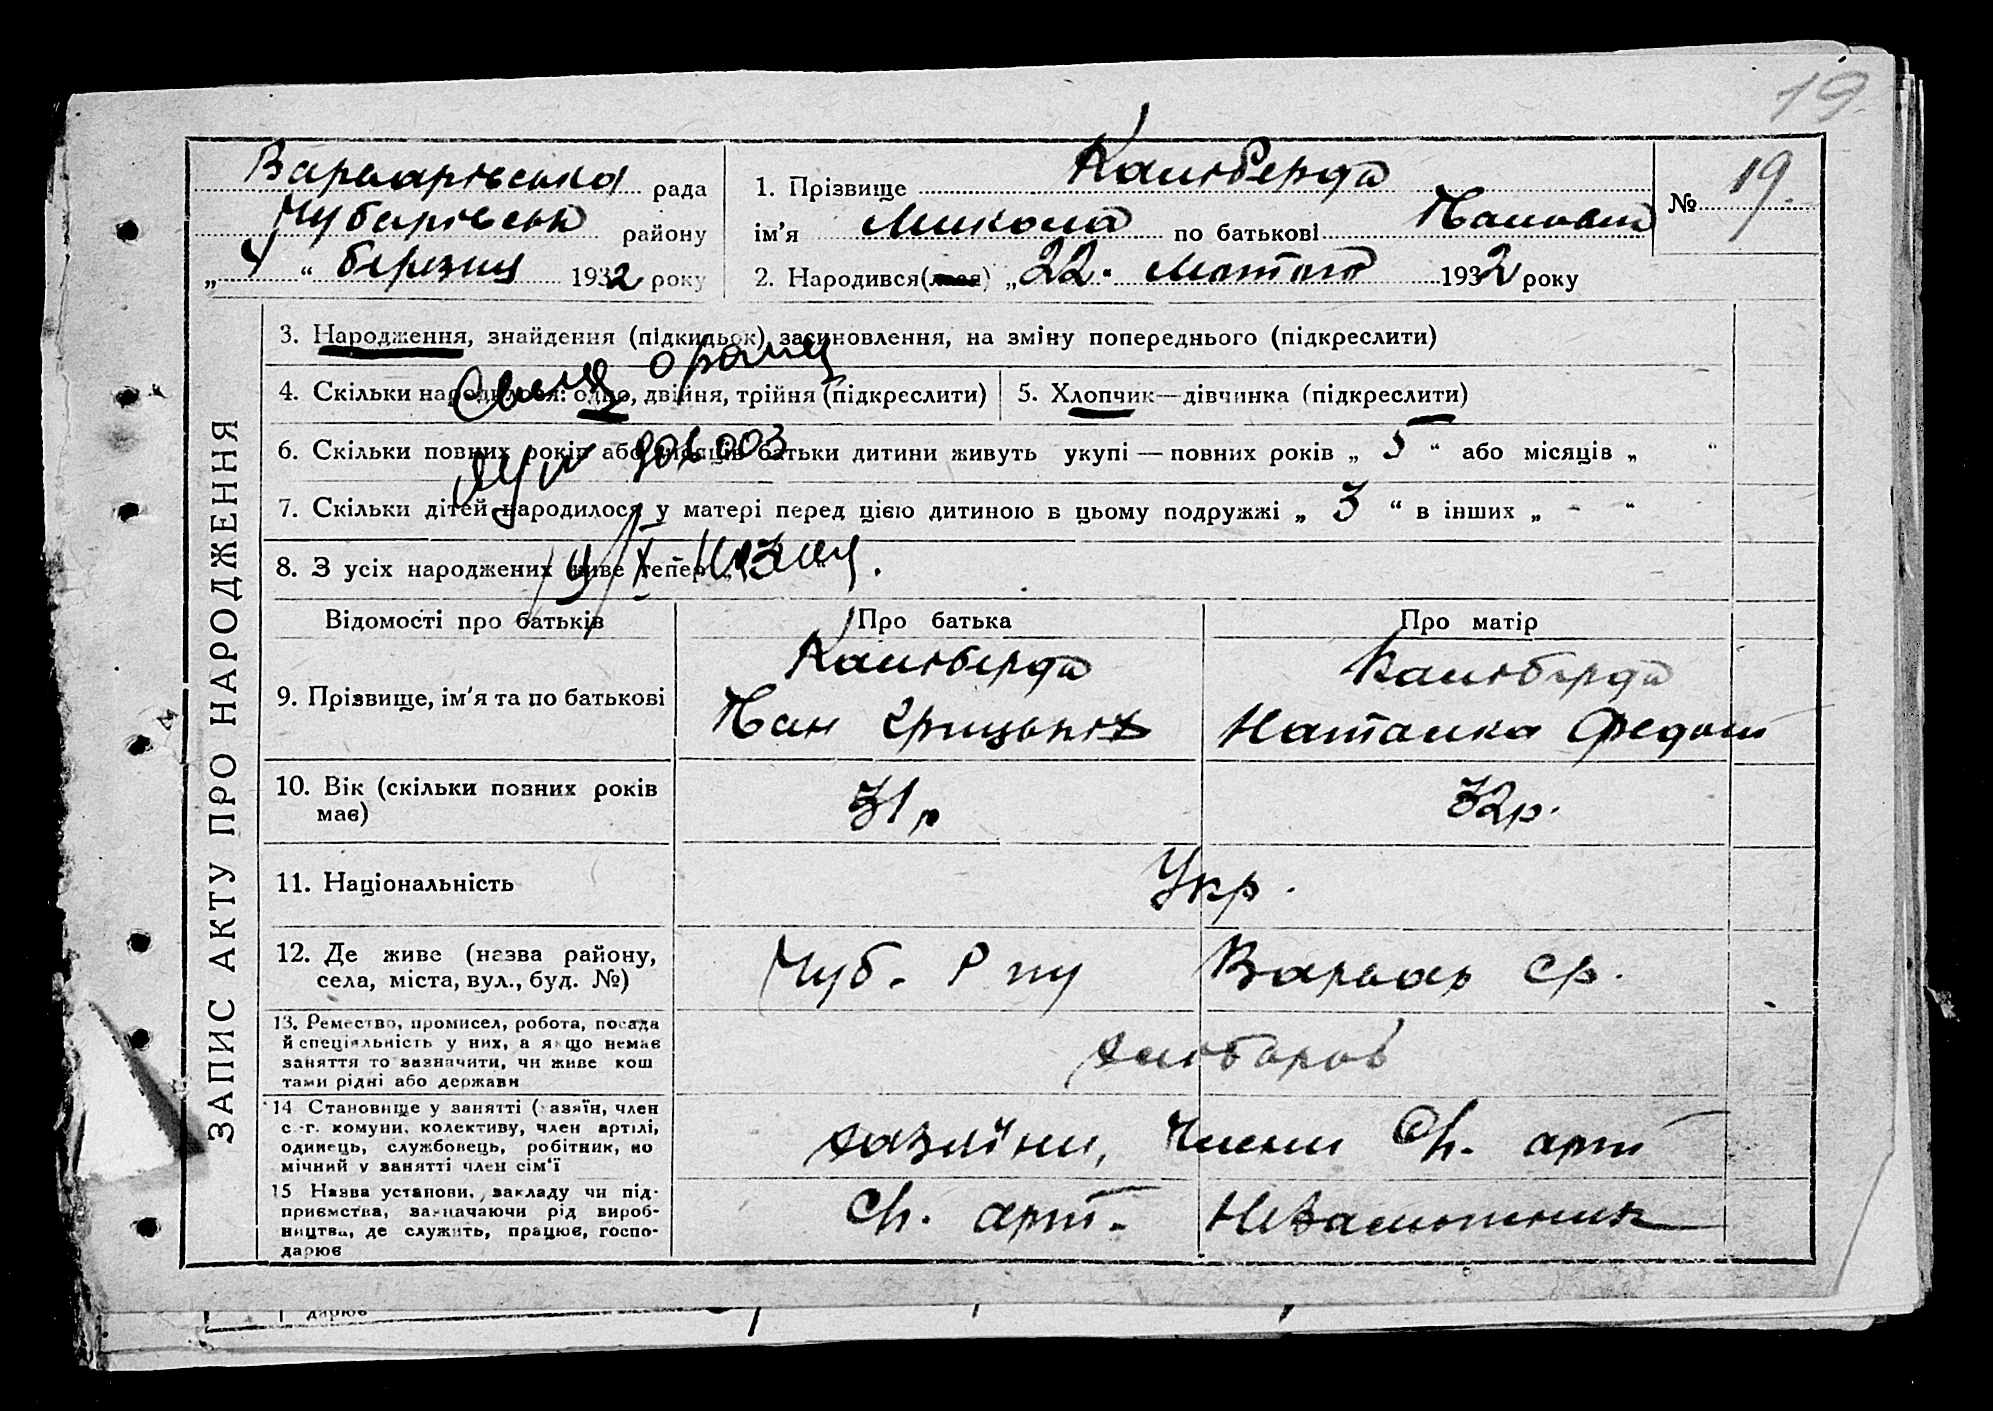 19
Варварівська рада
Чубарівськ району
„ 4 “ березня 1932 року
1. Прізвище Калиберда
ім’я Микола по батькові
2. Народився(лася) „ 22. “ Лютого 1932 року
№ 19.
ЗАПИС АКТУ ПРО НАРОДЖЕННЯ
3. Народження, знайдення (підкидьок), засиновлення, на зміну попереднього (підкреслити)
4. Скільки народилося: одно, двійня, трійня (підкреслити)
5. Хлопчик—дівчинка (підкреслити)
6. Скільки повних років або місяців батьки дитини живуть укупі — повних років „ 5 “ або місяців „ “
7. Скільки дітей народилося у матері перед цією дитиною в цьому подружжі „ 3 “ в інших „ - “
8. З усіх народжених живе тепер „ 3 “
Відомості про батьків
Про батька
Про матір
9. Прізвище, ім’я та по батькові
Калиберда
Калиберда
Наталка Федот
10. Вік (скільки повних років
має)
31 р
32р.
11. Національність
Укр.
12. Де живе (назва району,
села, міста, вул., буд. №)
Чуб. Р ну Варвар ср.
13. Ремество, промисел, робота, посада
й спеціяльність у них, а якщо немає
заняття то зазначити, чи живе кош
тами рідні або держави
хлібороб
14 Становище у занятті (хазяїн, член
с.-г. комуни, колективу, член артілі,
одинець, службовець, робітник, по
мічний у занятті член сім’ї
хазяїни, члени Сг. арт
15 Назва установи, закладу чи під-
приємства, зазначаючи рід вироб-
ництва, де служить, працює, госпо-
дарює
Сг. арт. Незаможник
дарює